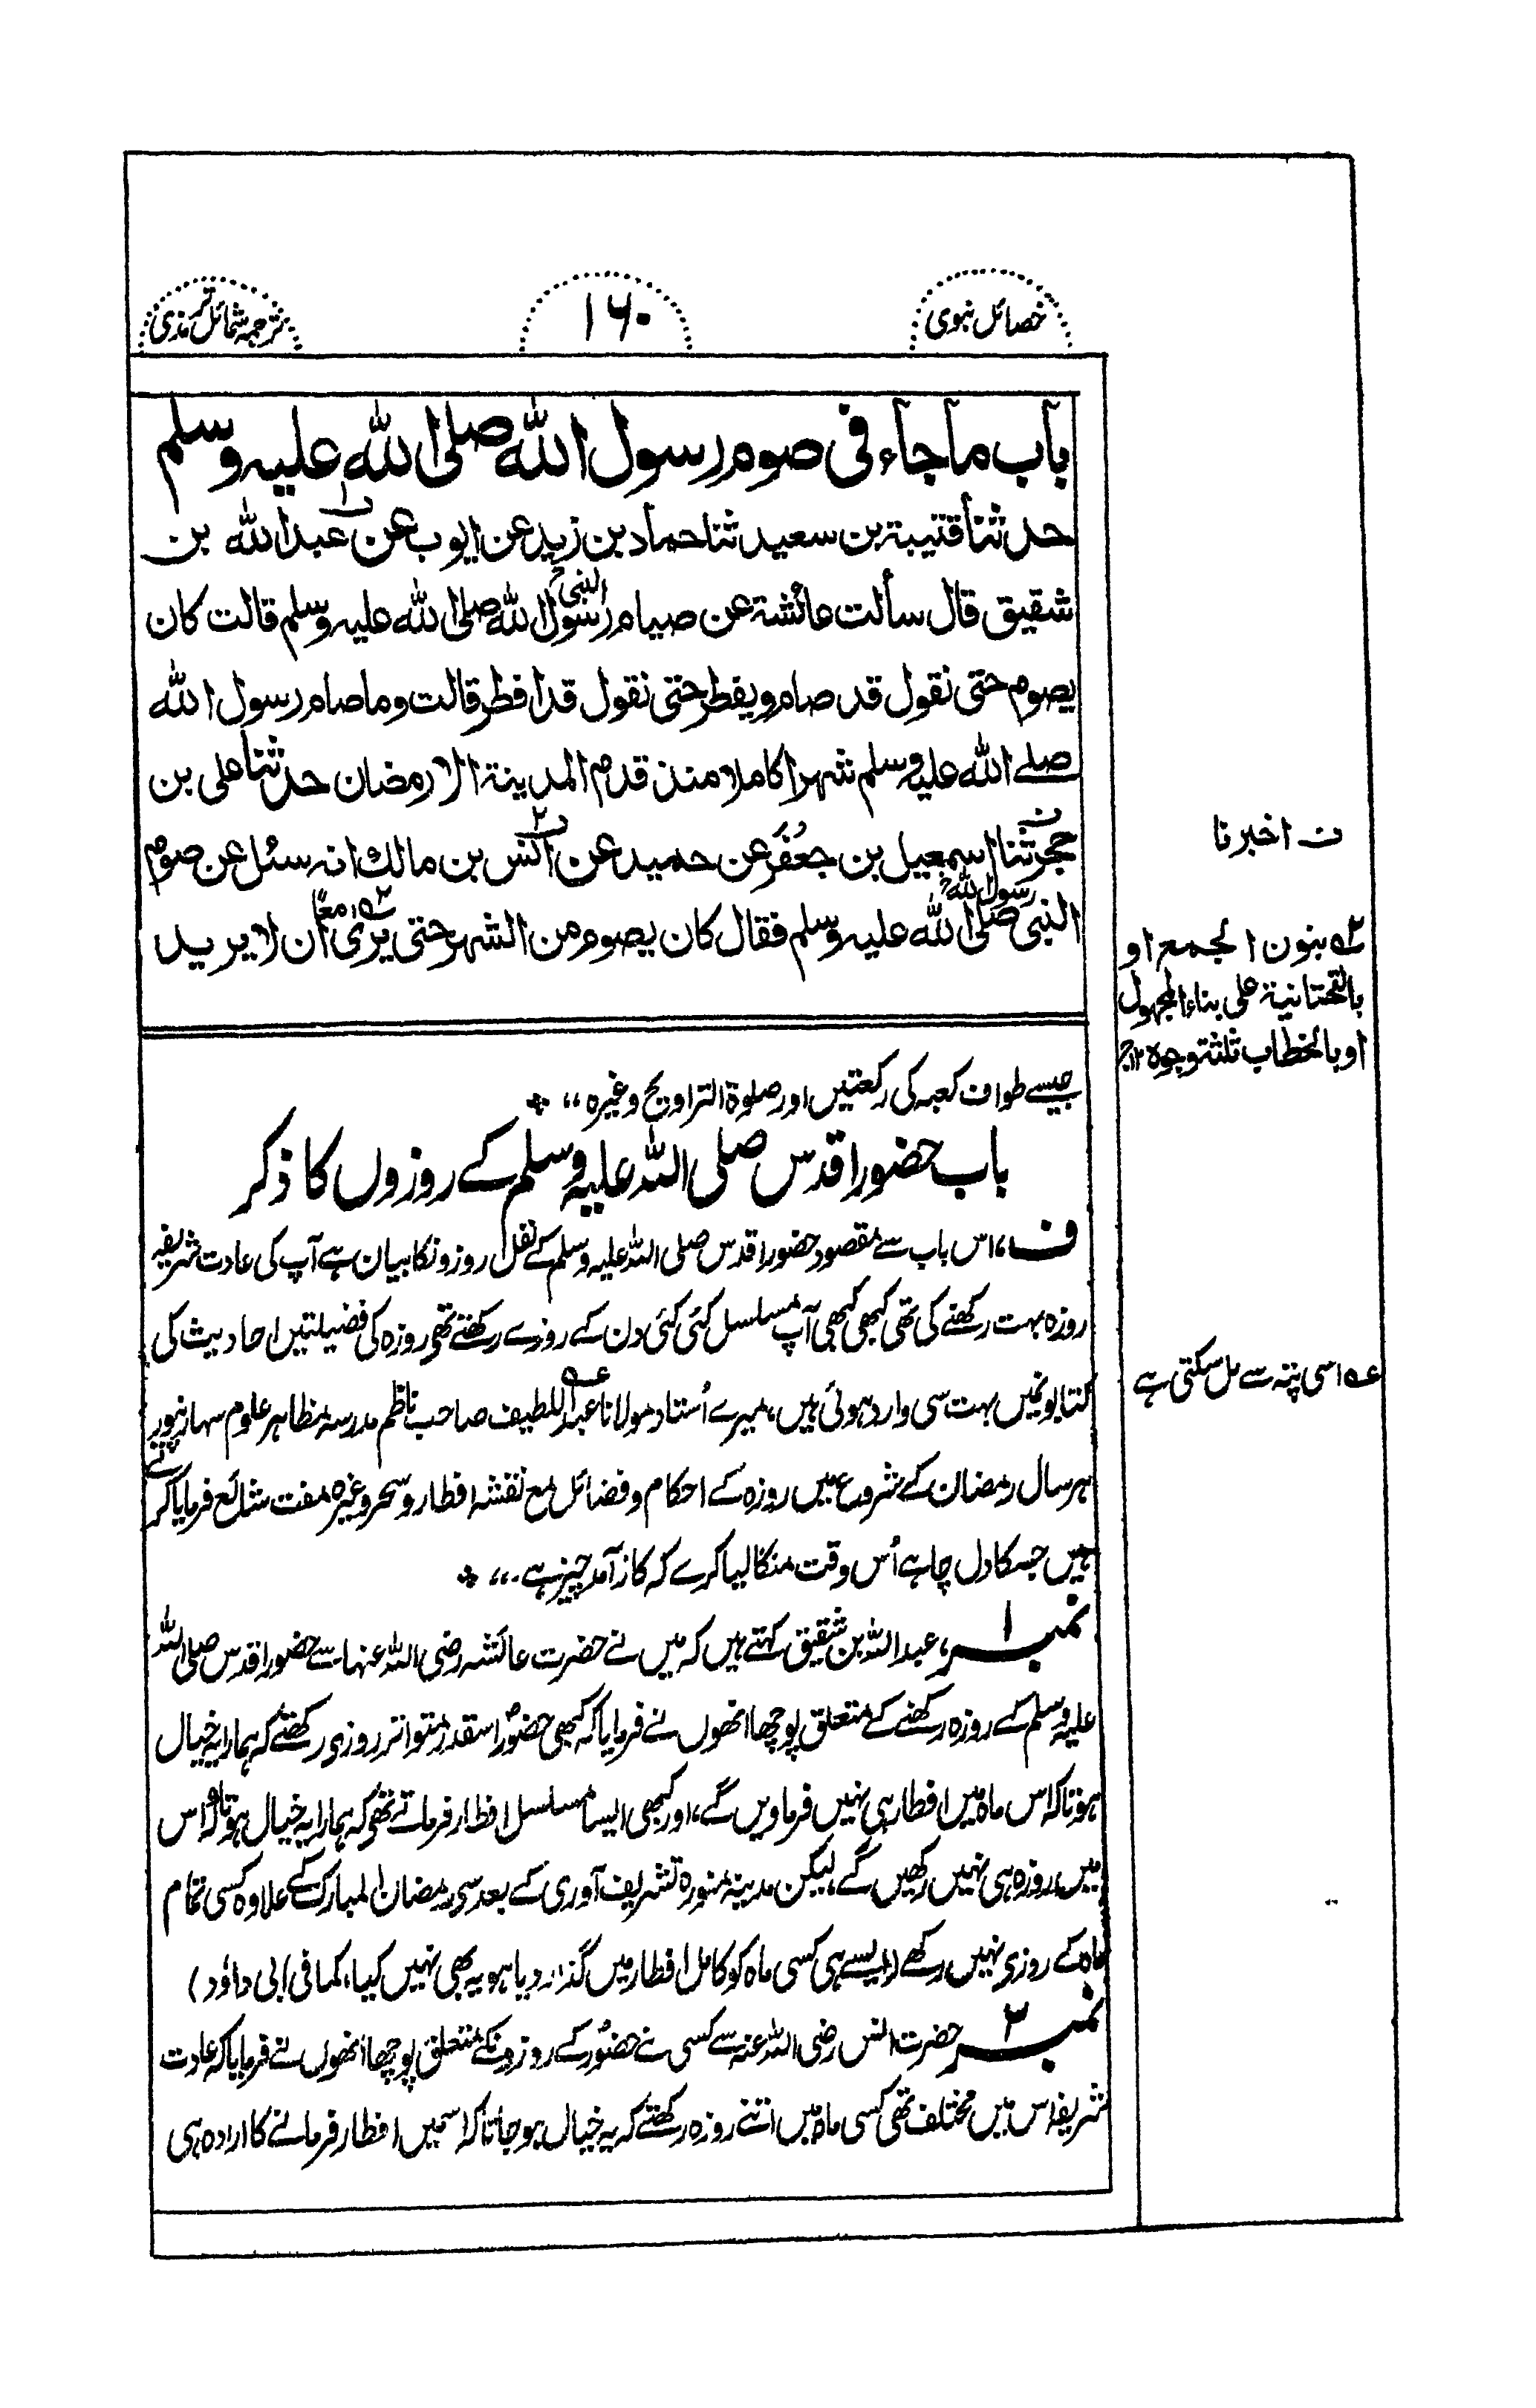 خصائل نبوی
۱۶۰
ترجمہ شمائل ترمذی
باب ماجاء فی صوم رسول الله صلی الله علیه وسلم
حدثنا قتیبة بن سعید ثنا حماد بن زید عن ایوب عن عبد الله بن
شقیق قال سألت عائشة عن صیام رسول الله صلی الله علیه وسلم قالت کان
النبی
یصوم حتی نقول قد صام ویفطر حتی نقول قد افطر قالت وما صام رسول الله
صلے الله علیه وسلم شهرا کاملا منذ قدم المدینة الا رمضان حدثنا علی بن
حجر ثنا اسمعیل بن جعفر عن حمید عن انس بن مالك انه سئل عن صوم
رسول الله
النبی صلی الله علیه وسلم فقال کان یصوم من الشهر حتی یری ان لا یرید
معًا
ن اخبرنا
بنون الجمع او
بالتحتانیة علی بناء المجهول
او بالخطاب ثلثة وجوه ۱۲
جیسے طواف کعبہ کی رکعتیں اور صلوۃ التراویح وغیرہ ،،
باب حضور اقدس صلی اللہ علیہ وسلم کے روزوں کا ذکر
ف ،، اس باب سے مقصود حضور اقدس صلی اللہ علیہ وسلم کے نفل روزونکا بیان ہے آپ کی عادت شریفہ
روزہ بہت رکھنے کی تھی کبھی کبھی آپ مسلسل کئی کئی دن کے روزے رکھتے تھے روزہ کی فضیلتیں احادیث کی
کتابونمیں بہت سی وارد ہوئی ہیں، میرے اُستاد مولانا عبد اللطیف صاحب ناظم مدرسہ مظاہر علوم سہارنپور
ہر سال رمضان کے شروع میں روزہ کے احکام وفضائل مع نقشہ افطار و سحر وغیرہ مفت شائع فرمایا کرتے
ہیں جسکا دل چاہے اُس وقت منگا لیا کرے کہ کار آمد چیز ہے ۔،،
عہ اسی پتہ سے مل سکتی ہے
نمبر ۱، عبد اللہ بن شقیق کہتے ہیں کہ میں نے حضرت عائشہ رضی اللہ عنہا سے حضور اقدس صلی اللہ
علیہ وسلم کے روزہ رکھنے کے متعلق پوچھا انھوں نے فرمایا کہ کبھی حضورؐ اسقدر متواتر روزی رکھتے کہ ہمارا یہ خیال
ہوتا کہ اس ماہ میں افطار ہی نہیں فرماویں گے، اور کبھی ایسا مسلسل افطار فرماتے تھے کہ ہمارا یہ خیال ہوتا کہ اس
میں روزہ ہی نہیں رکھیں گے لیکن مدینہ منورہ تشریف آوری کے بعد سے رمضان المبارک کے علاوہ کسی تمام
ماہ کے روزی نہیں رکھے (ایسے ہی کسی ماہ کو کامل افطار میں گذار دیا ہو یہ بھی نہیں کیا، کما فی ابی داؤد)
نمبر ۲ حضرت انس رضی اللہ عنہ سے کسی نے حضورؐ کے روزونکے متعلق پوچھا اُنھوں نے فرمایا کہ عادت
شریفہ اس میں مختلف تھی کسی ماہ میں اتنے روزہ رکھتے کہ یہ خیال ہو جاتا کہ اسمیں افطار فرمانے کا ارادہ ہی